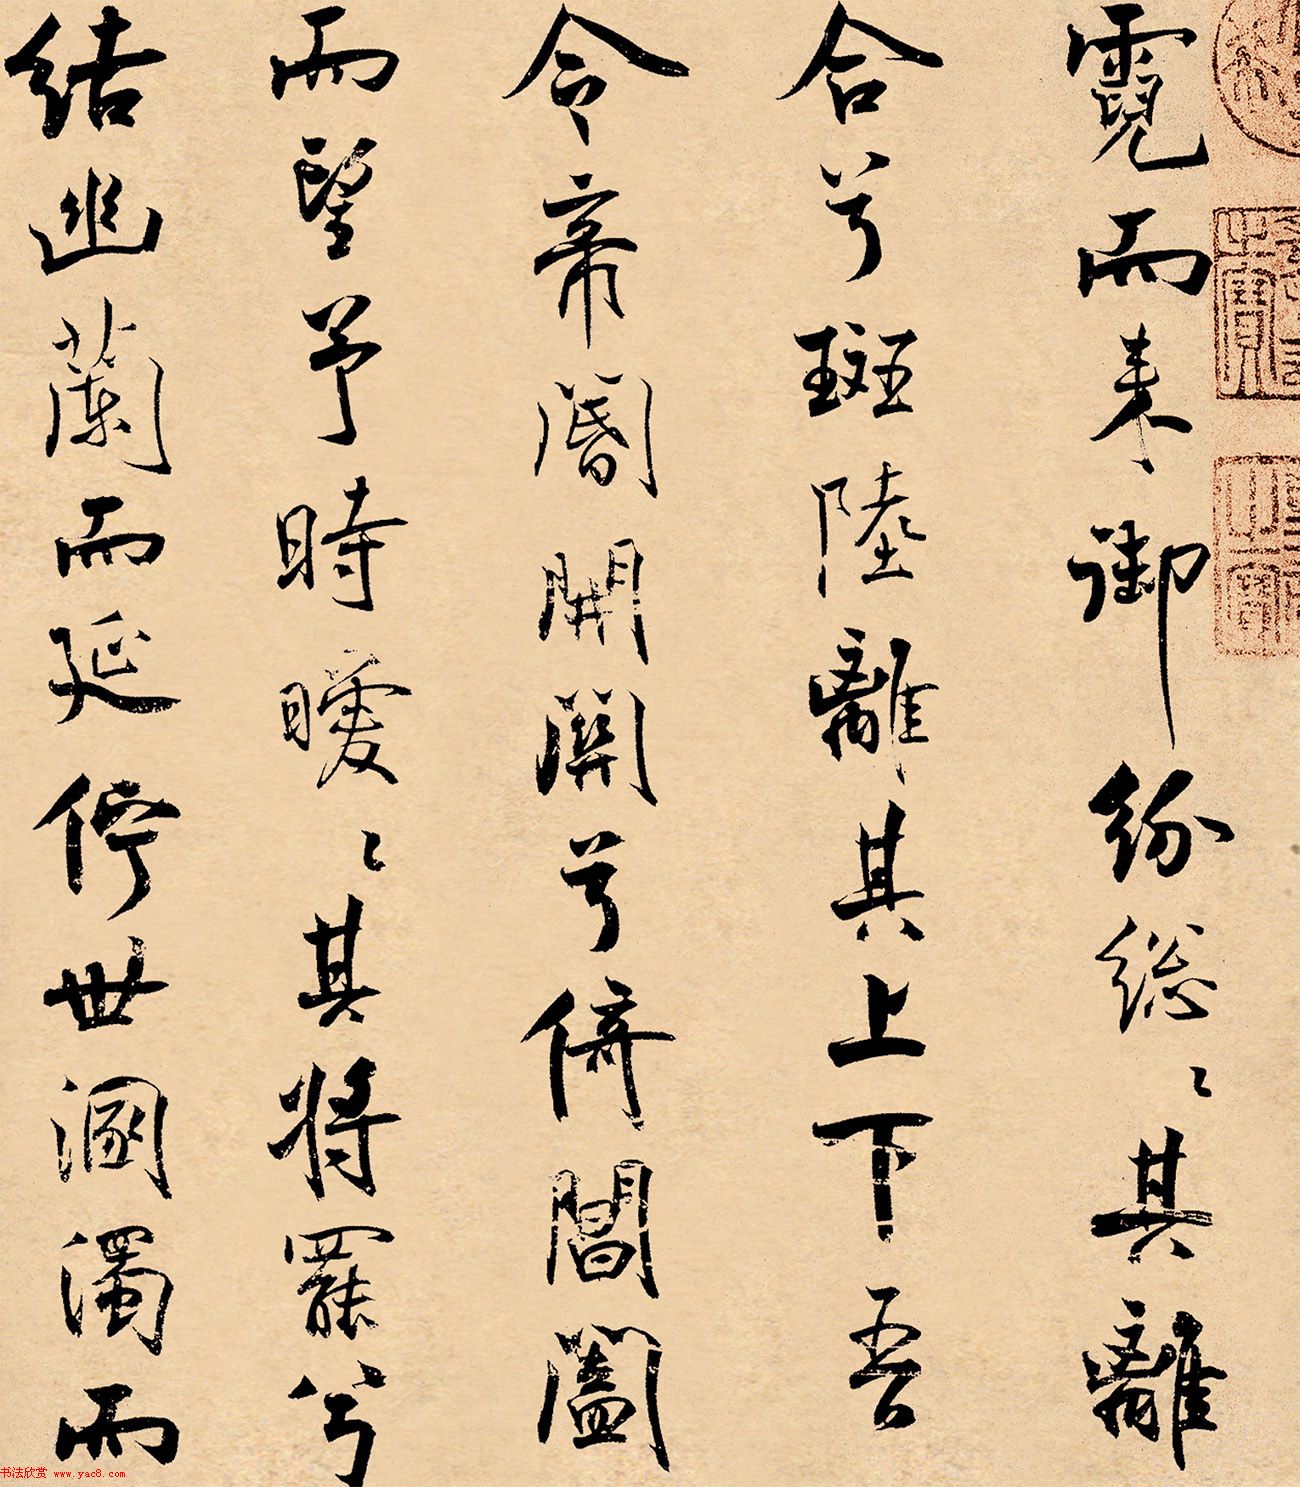 霓而来御紛総〻其離
合兮斑陸離其上下吾
令帝閽開關兮倚閶闔
而望予時曖〻其将罷兮
結幽蘭而延佇世溷濁而
书法欣赏 www.yac8.com